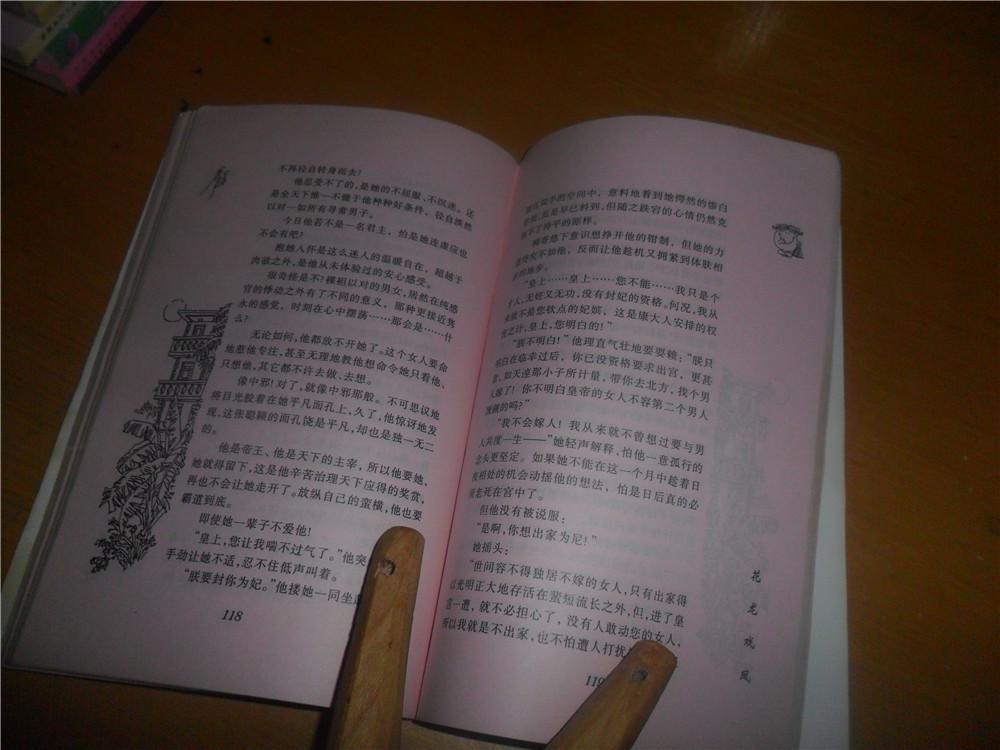 不再径自转身而去?
他忍受不了的,是她的不屈服、不沉迷。还
是全天下惟一不慑于他种种好条件,径自淡然
以对一如所有寻常男子。
今日他若不是一名君主,怕是她连虚应也
不会有吧?
抱她人怀是这么迷人的温暖自在,超越于
肉欲之外,是他从未体验过的安心感受。
很奇怪是不?裸裎以对的男女,居然在纯感
官的悸动之外有了不同的意义,那种更接近隽
永的感觉,时刻在心中摆荡……那会是……什
么?
无论如何,他都放不开她了。这个女人要命
地惹他专注,甚至无理地教他想命令她只看他、
只想他,其它都不许去做、去想。
像中邪!对了,就像中邪那般。不可思议地
将目光胶着在她平凡面孔上,久了,他惊讶地发
现,这张聪颖的面孔饶是平凡,却也是独一无二
的。
他是帝王、他是天下的主宰,所以他要她,
她就得留下,这是他辛苦治理天下应得的奖赏,
再也不会让她走开了。放纵自己的蛮横,他也要
霸道到底。
即使她一辈子不爱他!
“皇上,您让我喘不过气了。”他突
手劲让她不适,忍不住低声叫着。
“朕要封你为妃。”他搂她一同坐起
118
的空间中,意料地看到她愕然的惨白
早已料到,但随之跌宕的心情仍然克
不了持平的原样。
柳寄悠下意识想挣开他的钳制,但她的力
不如他,反而让他趁机又拥紧到体肤相
的地步。
“皇上……皇上……您不能……我只是个
人,无妊又无功,没有封妃的资格。何况,我从
不是您钦点的妃嫔,这是康大人安排的权
宜之计,皇上,您明白的!”
“朕不明白!”他理直气壮地要耍赖:“朕只
明白在临幸过后,你已没资格要求出宫,更甚
者,如天遥那小子所计量,带你去北方,找个男
人嫁了!你不明白皇帝的女人不容第二个男人
的吗?”
“我不会嫁人!我从来就不曾想过要与男
人共度一生——”她轻声解释,怕他一意孤行的
念头更坚定。如果她不能在这一个月中趁着日
夜相处的机会动摇他的想法,怕是日后真的必
须老死在宫中了。
但他没有被说服:
“是啊,你想出家为尼!”
她摇头:
“世间容不得独居不嫁的女人,只有出家得
以光明正大地存活在蜚短流长之外,但,进了皇
宫一遭,就不必担心了,没有人敢动您的女人,
所以我就是不出家,也不怕遭人打扰
119
花龙戏凤